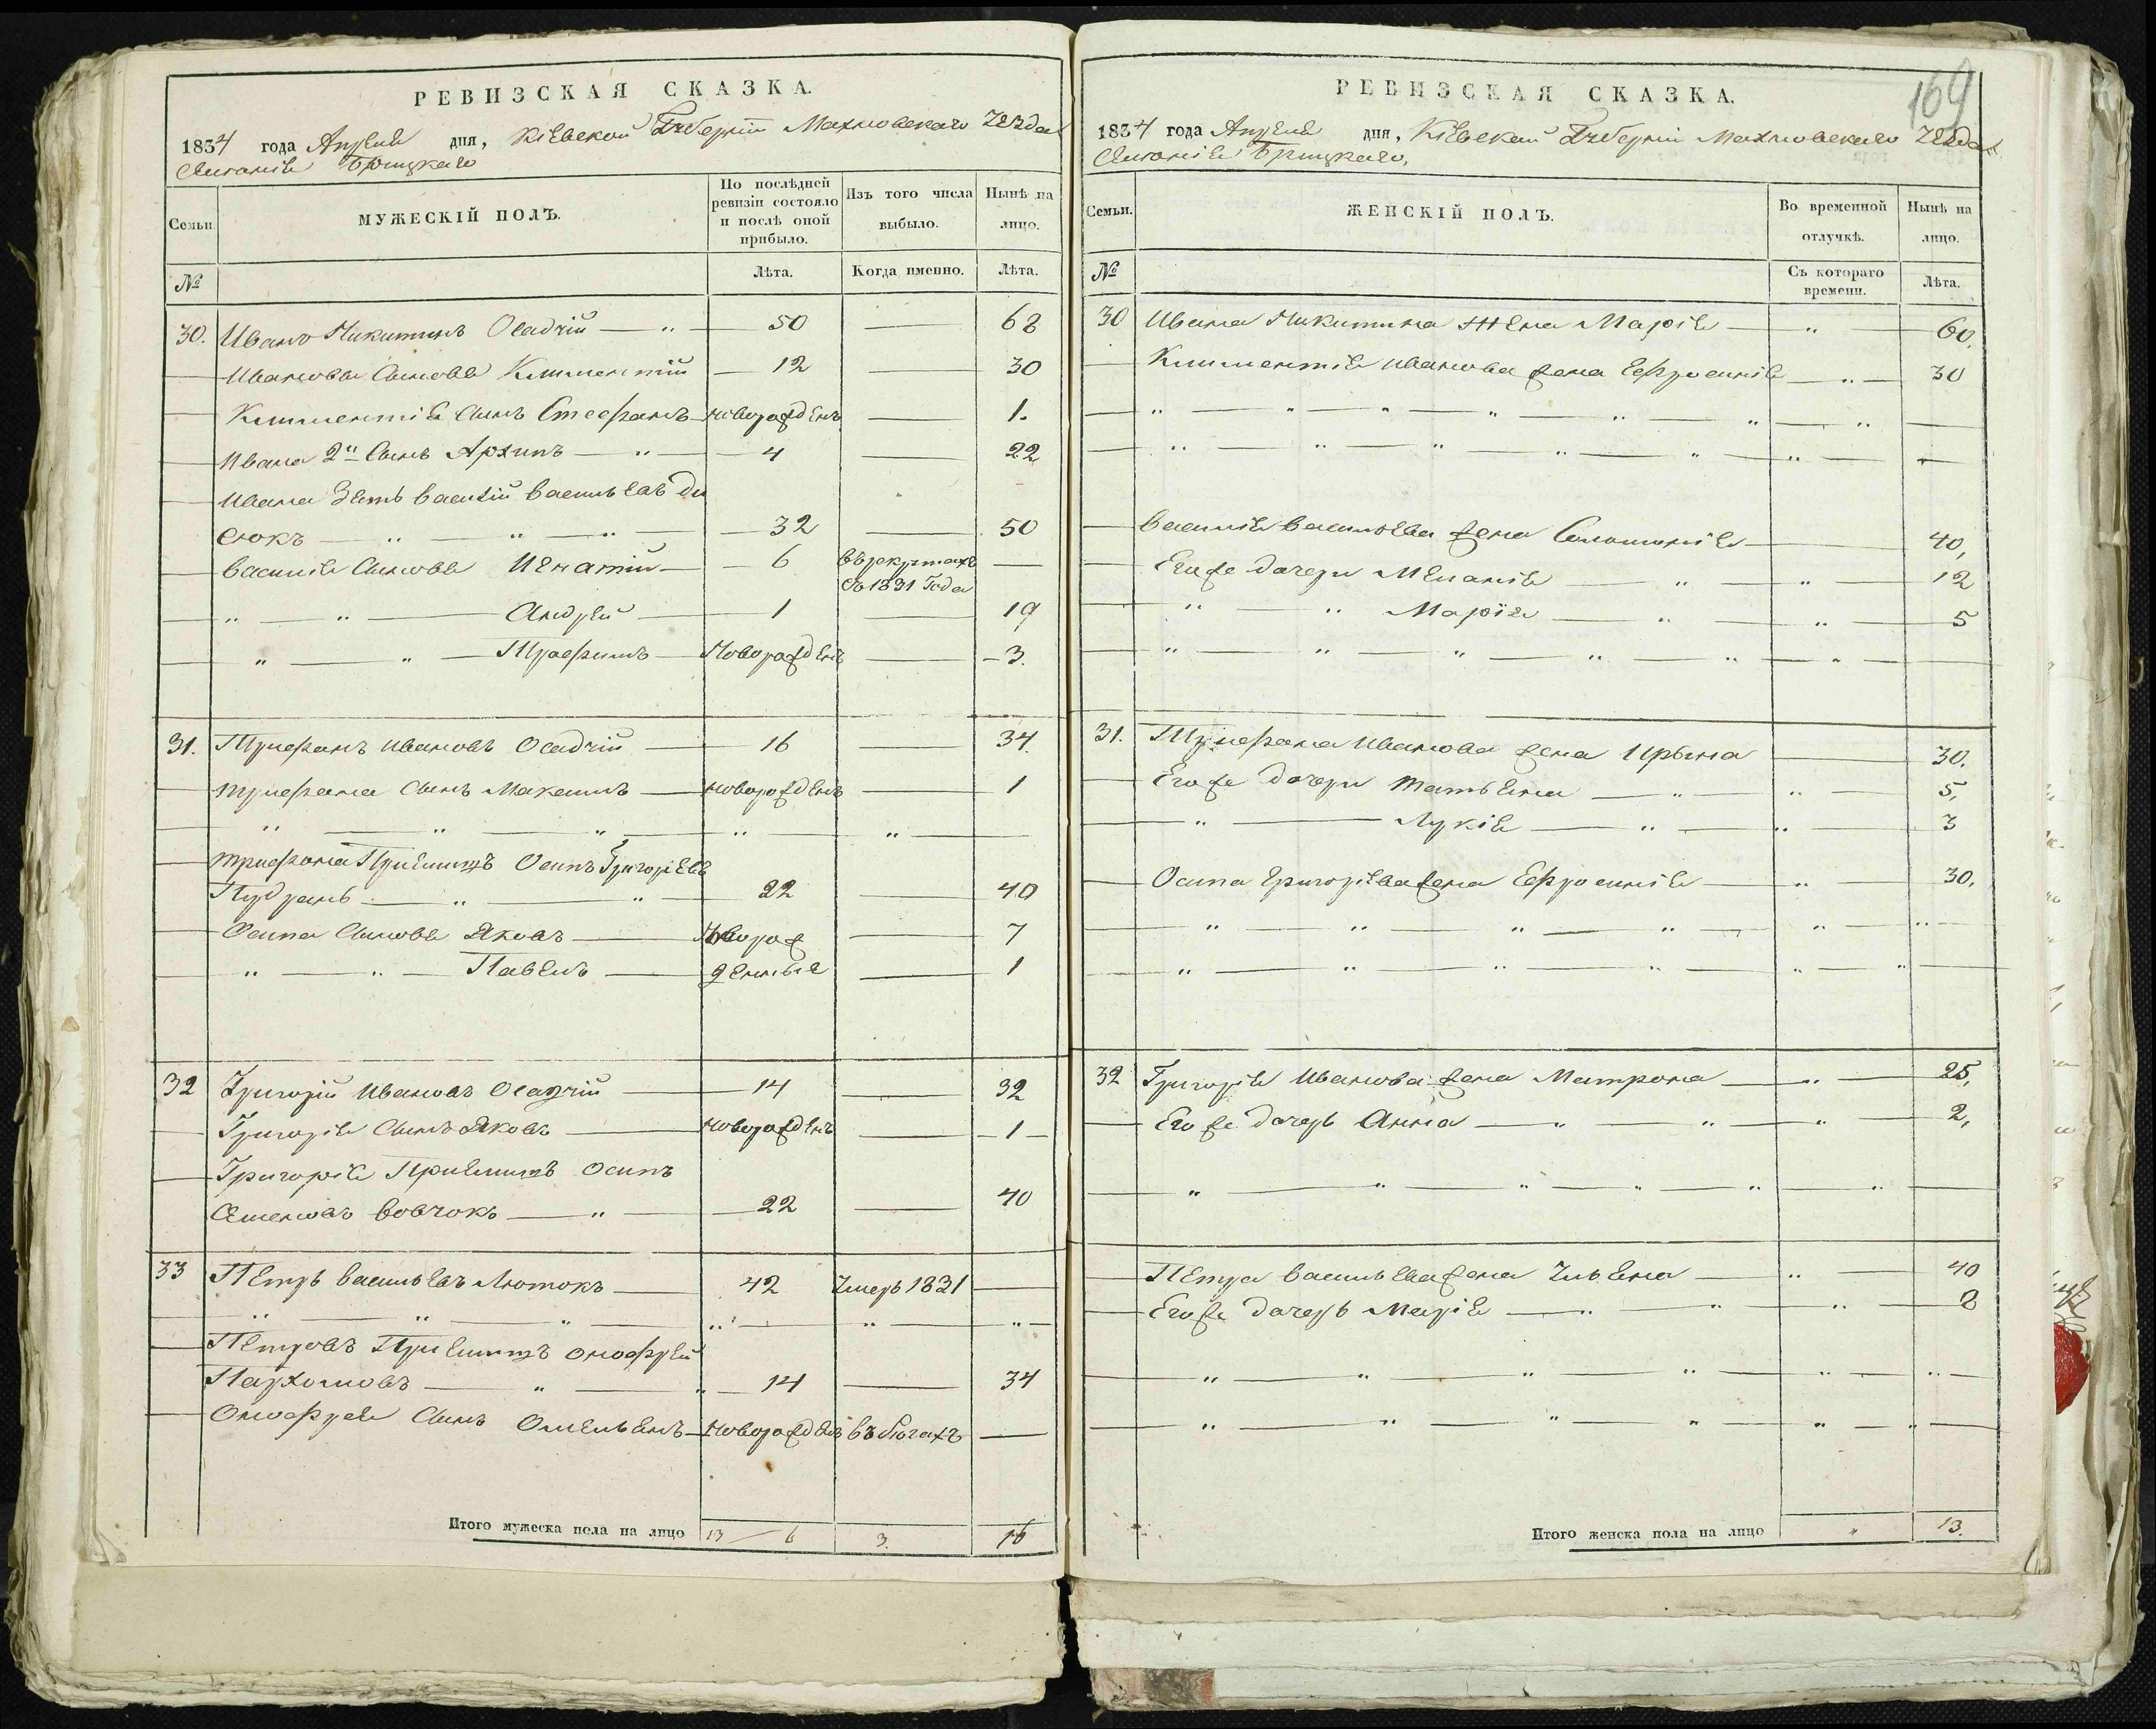 РЕВИЗСКАЯ СКАЗКА.
1834 года Апреля дня, Кіевской Губерніи Махновскаго Уѣзда
Селенія Брицкаго
Семьи.
МУЖЕСКІЙ ПОЛЪ.
По послѣдней ревизіи состояло и послѣ оной прибыло.
Изъ того числа выбыло.
Нынѣ на лицо.
№
Лѣта.
Когда именно.
Лѣта.
30. Иванъ Никитинъ Осадчій — 50 — 68
Ивановы Сыновья Климентій — 12 — 30
Климентія Сынъ Стефанъ — новорожденъ — 1.
Ивана 2й Сынъ Архипъ — 4 — 22
Ивана Зять Василій Васильевъ Ди
сюкъ — 32 — 50
Василія Сыновья Игнатій — 6 въ рекрутахъ —
съ 1831 Года
" — " — Андрей — 1 — 19
" — " — Трофимъ — Новорожденъ — 3.
31. Трифанъ Ивановъ Осадчій — 16 — 34.
трифана Сынъ Максимъ — новорожденъ — 1
" — " — " — " — " —
трифона Пріемышъ Осипъ Григоріевъ
22 — 40
Осипа Сыновья Яковъ — Новорож — 7
" — " — Павелъ — денные — 1
32 Григорій Ивановъ Осадчій — 14 — 32
Григорія Сынъ Яковъ — новорожденъ — 1 —
Григорія Пріемышъ Осипъ
Семеновъ Вовчокъ — " — 22 — 40
33 Петръ Васильевъ Лютокъ — 42 Умеръ 1831 —
" — " — " — " — " — " —
Петровъ Пріемышъ Онофрей
Пархомовъ — " — " — 14 — 34
Онофрея Сынъ Омельянъ — Новорожденъ въ бѣгахъ —
Итого мужеска пола на лицо 13 — 6 3. 16
169
РЕВИЗСКАЯ СКАЗКА.
1834 года Апреля дня, Кіевской Губерніи Махновскаго Уѣзда
Селенія Брицкаго.
Семьи.
ЖЕНСКІЙ ПОЛЪ.
Во временной отлучкѣ.
Нынѣ на лицо.
№
Съ котораго времени.
Лѣта.
30 Ивана Никитина Жена Марія — " — 60.
Климентія Иванова жена Ефросинія — " — 30
" — " — " — " — " — " — " —
" — " — " — " — " — " —
Василія Васильева жена Соломонія — 40,
Его же дочери Меланія — " — " — 12
" " Марія — " — " — 5
" — " — " — " — " — " —
31. Трифана Иванова жена Ирына — 30.
Его же Дочери Татьяна — " — " — 5,
" — Лукія — " — " — 3
Осипа Григоріева жена Ефросинія — " — 30.
" — " — " — " — " — " —
" — " — " — " — " — " —
32 Григорія Иванова жена Матрона — " — 25,
Его же дочерь Анна — " — " — " — 2,
" — " — " — " — " — " —
Петра Васильева жена Ульяна — " — 40
Его же дочерь Марія — " — " — " — 8
" — " — " — " — " — " —
" — " — " — " — " — " —
Итого женска пола на лицо " 13.